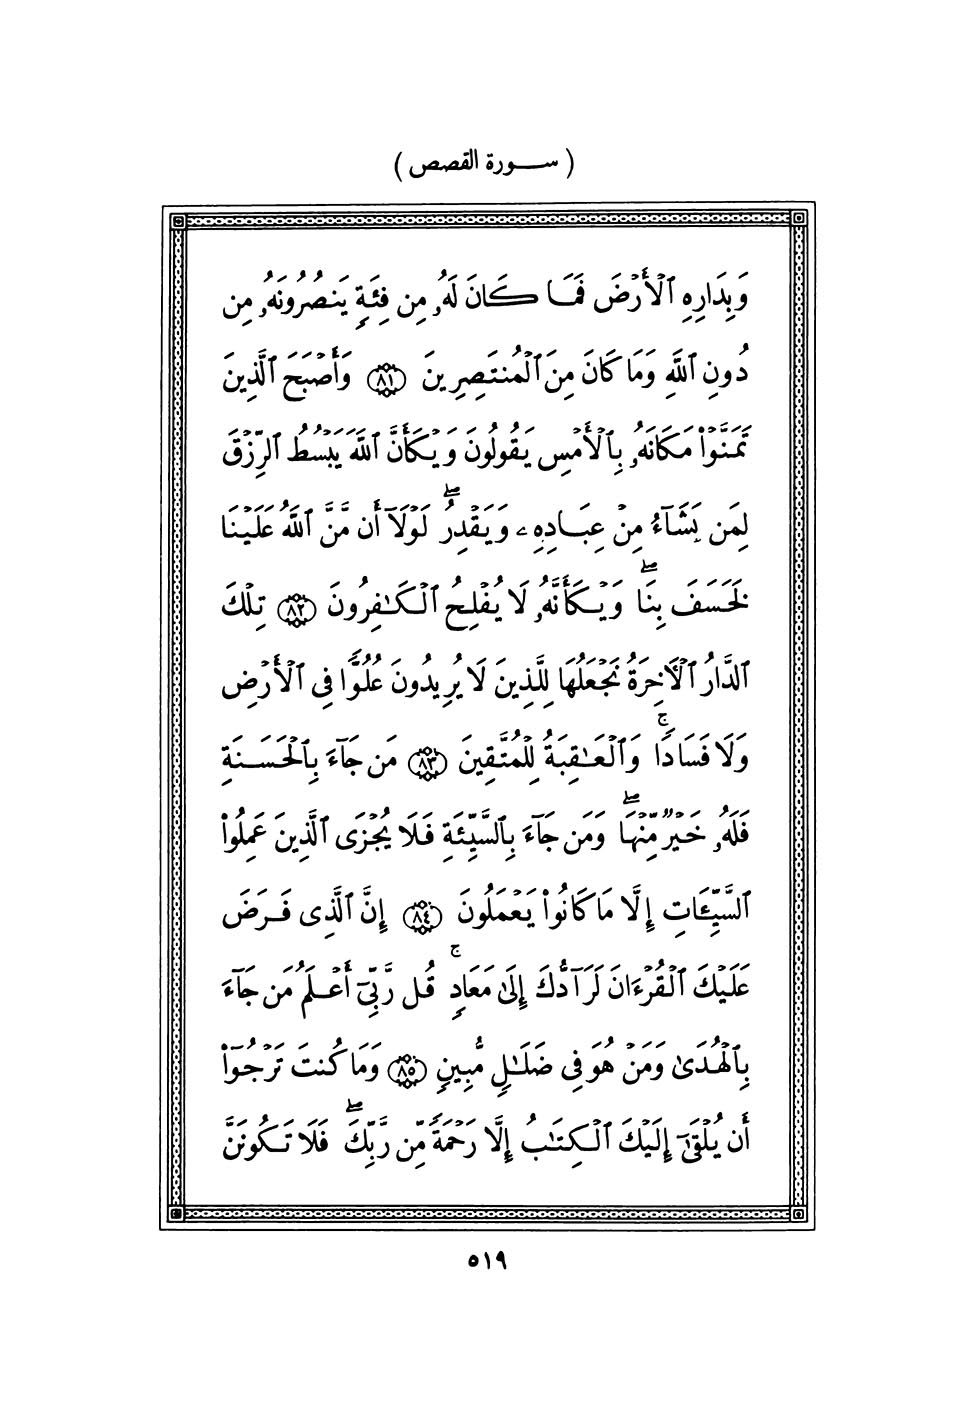 ( ســـورة القصص )
وَبِدَارِهِ ٱلْأَرْضَ فَمَا كَانَ لَهُۥ مِن فِئَةٍ يَنصُرُونَهُۥ مِن
دُونِ ٱللَّهِ وَمَا كَانَ مِنَ ٱلْمُنتَصِرِينَ ﴿٨١﴾ وَأَصْبَحَ ٱلَّذِينَ
تَمَنَّوْا۟ مَكَانَهُۥ بِٱلْأَمْسِ يَقُولُونَ وَيْكَأَنَّ ٱللَّهَ يَبْسُطُ ٱلرِّزْقَ
لِمَن يَشَآءُ مِنْ عِبَادِهِۦ وَيَقْدِرُ ۖ لَوْلَآ أَن مَّنَّ ٱللَّهُ عَلَيْنَا
لَخَسَفَ بِنَا ۖ وَيْكَأَنَّهُۥ لَا يُفْلِحُ ٱلْكَـٰفِرُونَ ﴿٨٢﴾ تِلْكَ
ٱلدَّارُ ٱلْـَٔاخِرَةُ نَجْعَلُهَا لِلَّذِينَ لَا يُرِيدُونَ عُلُوًّا فِى ٱلْأَرْضِ
وَلَا فَسَادًا ۚ وَٱلْعَـٰقِبَةُ لِلْمُتَّقِينَ ﴿٨٣﴾ مَن جَآءَ بِٱلْحَسَنَةِ
فَلَهُۥ خَيْرٌ مِّنْهَا ۖ وَمَن جَآءَ بِٱلسَّيِّئَةِ فَلَا يُجْزَى ٱلَّذِينَ عَمِلُوا۟
ٱلسَّيِّـَٔاتِ إِلَّا مَا كَانُوا۟ يَعْمَلُونَ ﴿٨٤﴾ إِنَّ ٱلَّذِى فَرَضَ
عَلَيْكَ ٱلْقُرْءَانَ لَرَآدُّكَ إِلَىٰ مَعَادٍ ۚ قُل رَّبِّىٓ أَعْلَمُ مَن جَآءَ
بِٱلْهُدَىٰ وَمَنْ هُوَ فِى ضَلَـٰلٍ مُّبِينٍ ﴿٨٥﴾ وَمَا كُنتَ تَرْجُوٓا۟
أَن يُلْقَىٰٓ إِلَيْكَ ٱلْكِتَـٰبُ إِلَّا رَحْمَةً مِّن رَّبِّكَ ۖ فَلَا تَكُونَنَّ
٥١٩